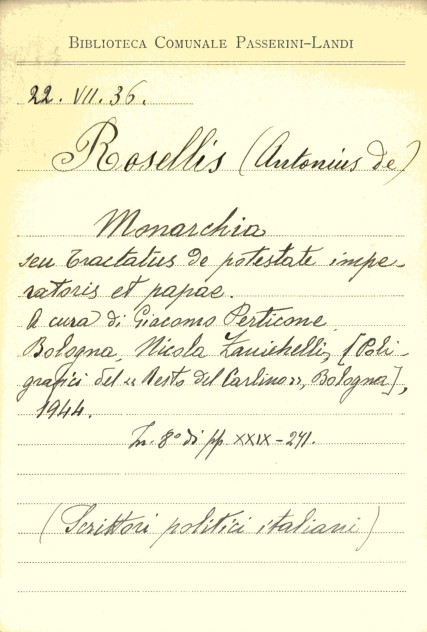 BIBLIOTECA COMUNALE PASSERINI-LANDI
22. VII. 36.
Rosellis (Antonius de)
Monarchia
seu Tractatus de potestate impe-
ratoris et papae.
A cura di Giacomo Perticone.
Bologna, Nicola Zanichelli, [Poli-
grafici del "Resto del Carlino", Bologna],
1944.
In. 8° di pp. XXIX-241.
(Scrittori politici italiani)